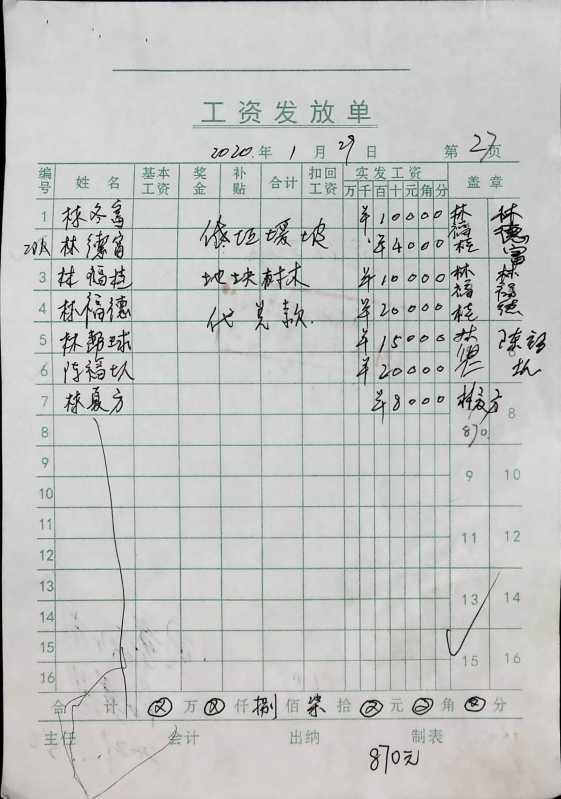 工资发放单
2020.年 1 月 29 日 第 27 页
编号 姓名 基本工资 奖金 补贴 合计 扣回工资 实发工资 万千百十元角分 盖章
1 林冬富 ¥10000 林福桂 林德富
2 林德富 坂 ¥4000
3 林福桂 地块树木 ¥10000 林福桂 林福德
4 林福德 代兑款. ¥20000
5 林朝球 ¥15000 陈福
6 陈福 ¥20000
7 林夏方 ¥8000 林夏方 8
870.
8
9 9 10
10
11 11 12
12
13 13 14
14
15 15 16
16
合计 万 仟 捌 佰 柒 拾 元 角 分
主任 会计 出纳 制表
870元